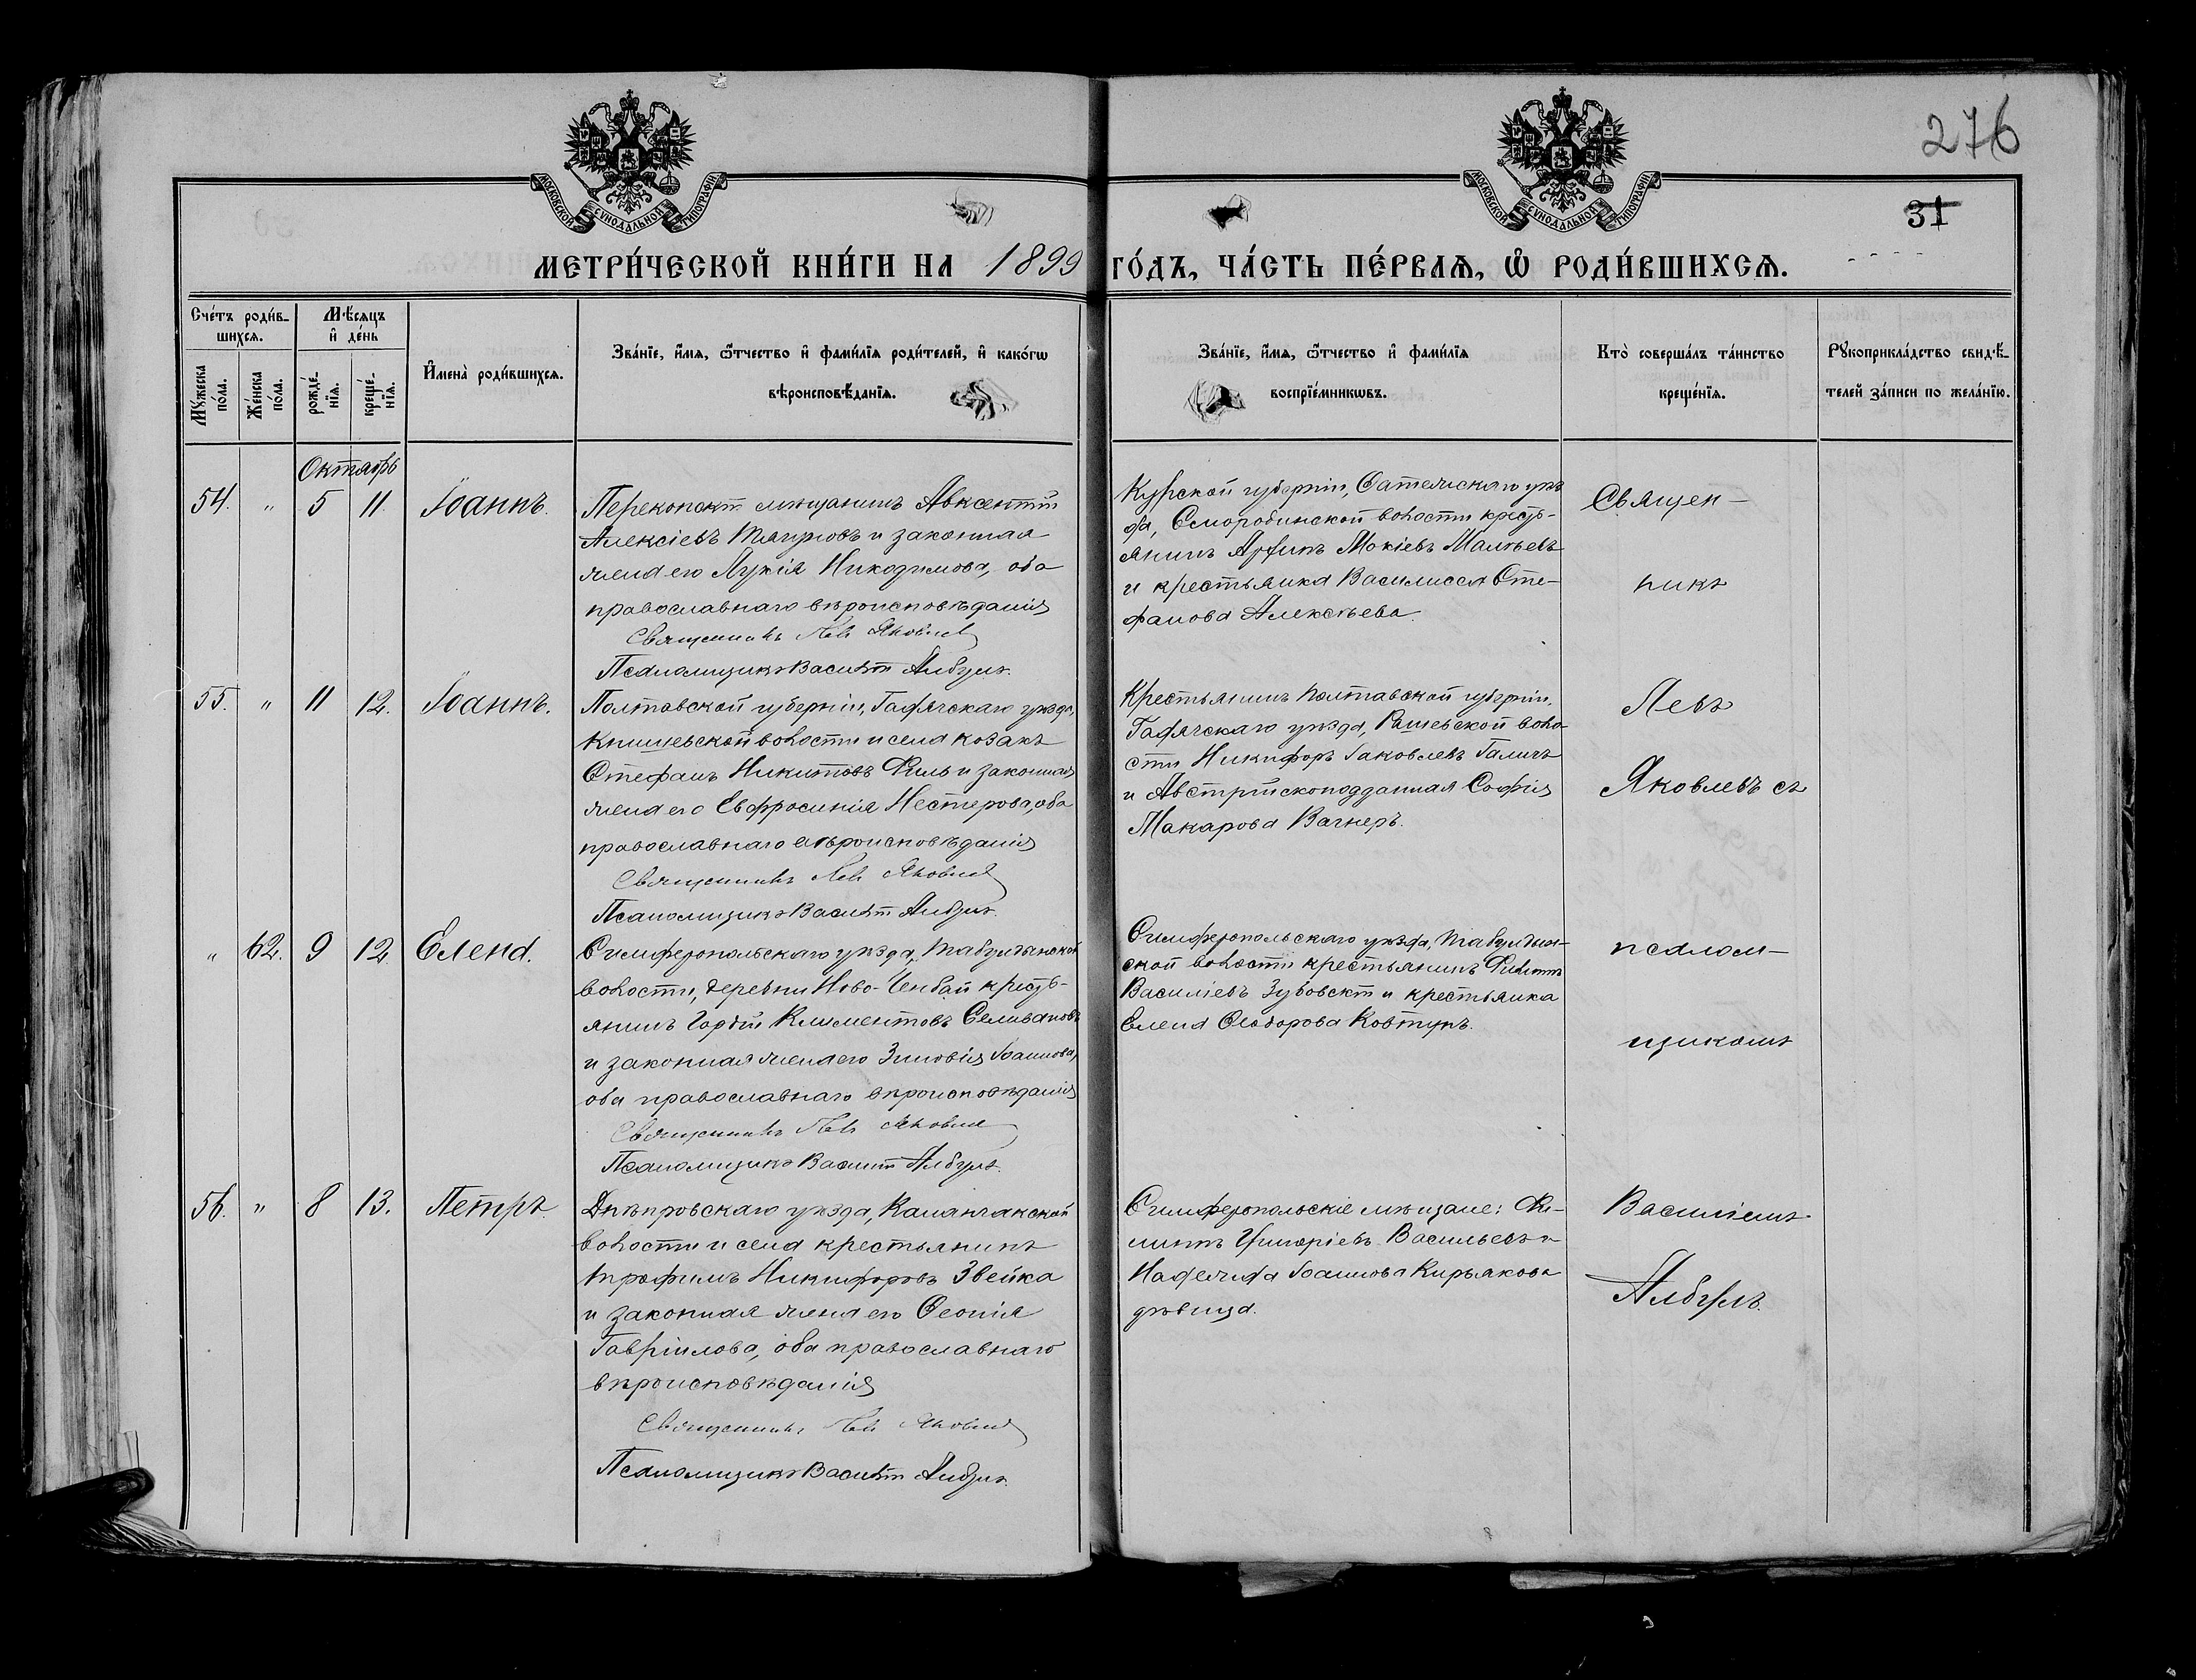 276
31
МОСКОВСКОЙ СѴНОДАЛЬНОЙ ТИПОГРАФІИ
МОСКОВСКОЙ СѴНОДАЛЬНОЙ ТИПОГРАФІИ
МЕТРИ́ЧЕСКОЙ КНИ́ГИ НА 1899 ГО́ДЪ, ЧА́СТЬ ПЕ́РВАѦ, Ѡ҆ РОДИ́ВШИХСѦ.
Сче́тъ роди́в-
шихсѧ.
Мꙋ́жеска по́ла.
Же́нска по́ла.
Мѣ́сѧцъ
и҆ де́нь
рожде́-
нїѧ.
креще́-
нїѧ.
И҆мена̀ роди́вшихсѧ.
Зва́нїе, и҆́мѧ, ѻ҆́тчество и҆ фами́лїѧ роди́телей, и҆ како́гѡ
вѣроисповѣ́данїѧ.
Зва́нїе, и҆́мѧ, ѻ҆́тчество и҆ фами́лїѧ
воспрїе́мникѡвъ.
Кто̀ соверша́лъ та́инство
креще́нїѧ.
Рꙋкоприкла́дство свидѣ́-
телей за́писи по жела́нїю.
Октябрь
54. " 5 11. Іоаннъ.
Перекопскій мѣщанинъ Авксентій
Алексіевъ и законная
жена его Лукія Никодимова, оба
православнаго вѣроисповѣданія
Священникъ Левъ Яковлев
Псаломщикъ Василій Албулъ.
Курской губерніи, уѣз
да, Смородинской волости кресть-
янинъ Мокіевъ
и крестьянка Василисса Сте-
фанова Алексѣева.
55. " 11 12. Іоаннъ.
Полтавской губерніи, Гадячскаго уѣзда,
Книшевской волости и села козакъ
Стефанъ Никитовъ Филь и законная
жена его Евфросинія Нестерова, оба
православнаго вѣроисповѣданія
Священникъ Левъ Яковлев
Псаломщикъ Василій Албулъ.
Крестьянинъ Полтавской губерніи,
Гадячскаго уѣзда, Рашевской воло-
сти Никифоръ Іаковлевъ Галичъ
и Австрійскоподданная Софія
Макарова Вагнеръ.
" 62. 9 12. Елена.
Симферопольскаго уѣзда, Табулдинской
волости, деревни Ново-Ченбай кресть-
янинъ Гордій Климентовъ Селивановъ
и законная жена его Зиновія Іоаннова,
оба православнаго вѣроисповѣданія
Священникъ Левъ Яковлев
Псаломщикъ Василій Албулъ.
Симферопольскаго уѣзда, Табулдин-
ской волости крестьянинъ Филиппъ
Василіевъ Зубовскій и крестьянка
Елена Ѳеодорова Ковтунъ.
56. " 8 13. Петръ.
Днѣпровскаго уѣзда, Каланчакской
волости и села крестьянинъ
Трофимъ Никифоровъ Звейка
и законная жена его Ѳеонія
Гавріилова, оба православнаго
вѣроисповѣданія
Священникъ Левъ Яковлев
Псаломщикъ Василій Албулъ.
Симферопольскіе мѣщане: Фи-
липпъ Григоріевъ Васильевъ и
Надежда Іоаннова Кирьякова
дѣвица.
Священ-
никъ
Левъ
Яковлевъ съ
псалом-
щикомъ
Василіемъ
Албулъ.